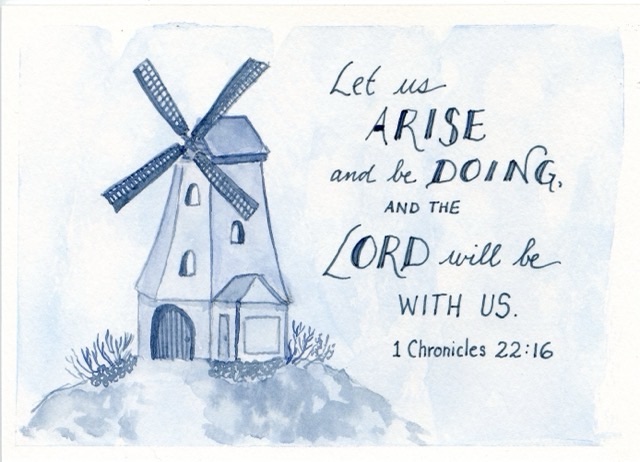 Let us
ARISE
and be DOING,
AND THE
LORD will be
WITH US.
1 Chronicles 22:16